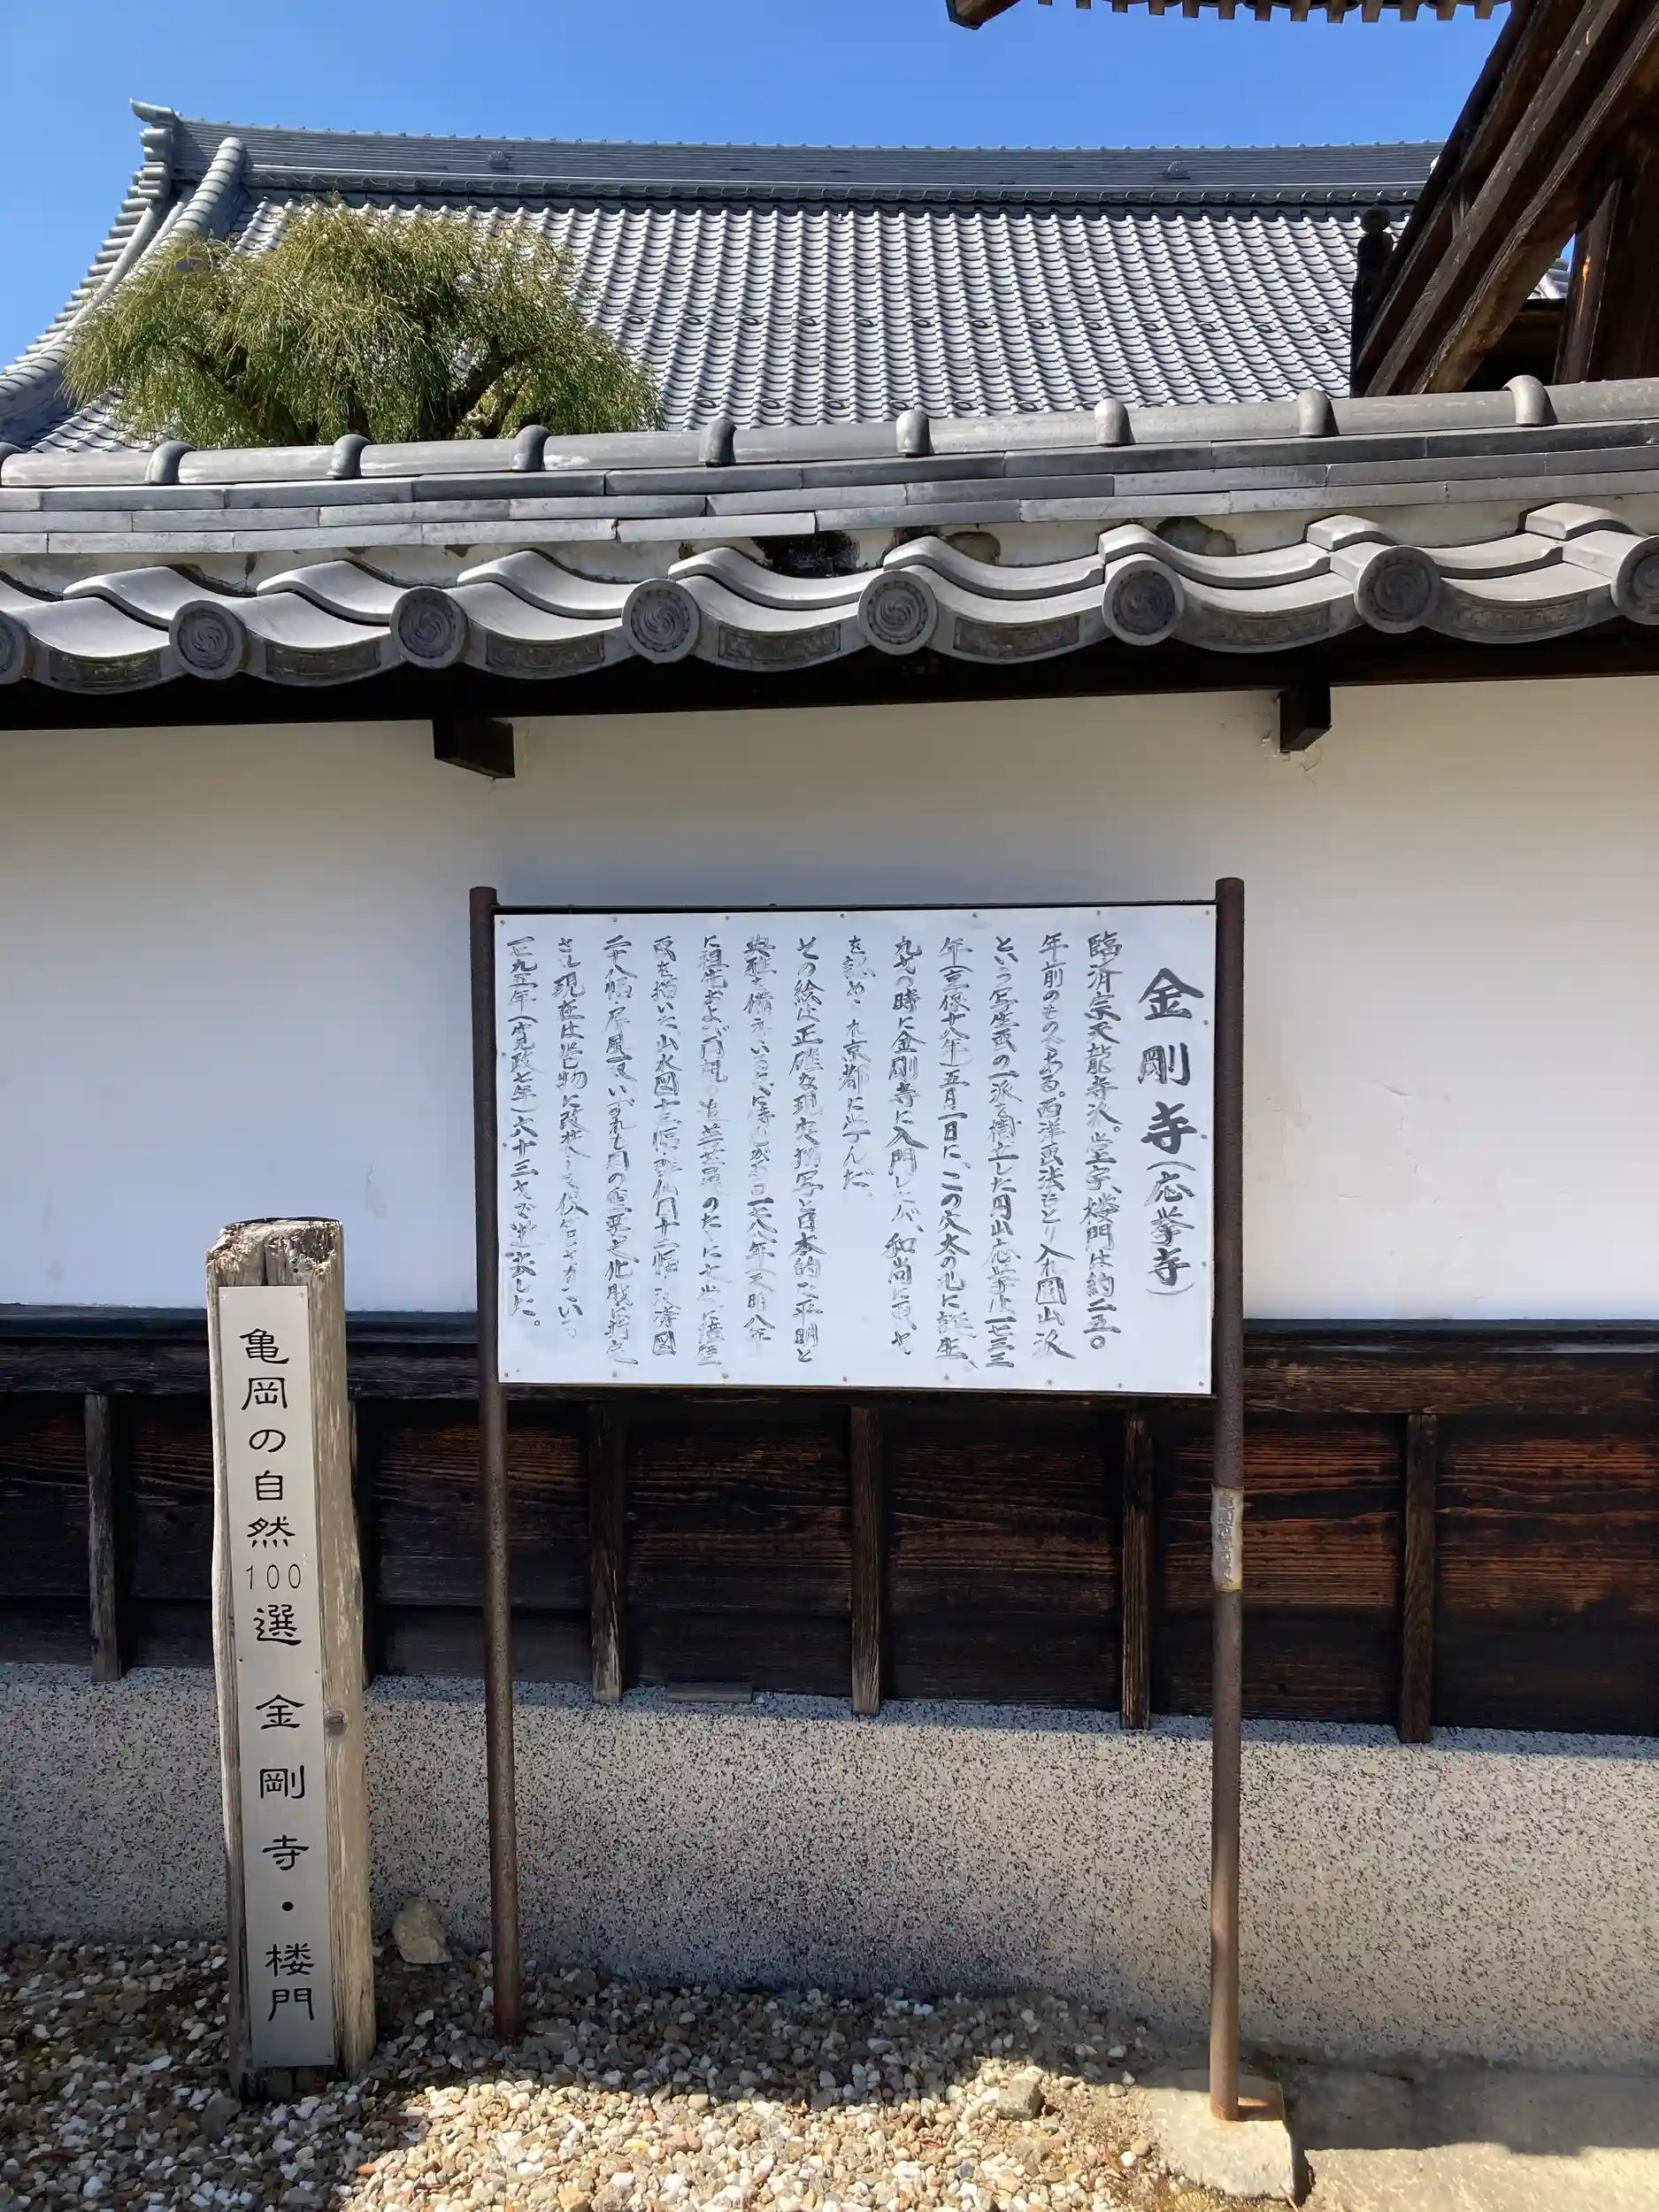 金剛寺(応挙寺)
臨済宗天龍寺派。堂宇、楼門は約二五〇
年前のものである。西洋画法もとり入れ円山派
という写生画の一派を樹立した円山応挙は一七三三
年(享保十八年)五月一日に、この穴太の地に誕生、
九才の時に金剛寺に入門したが、和尚に画才
を認められ京都に学んだ。
その絵は正確な現実描写と日本的な平明と
典雅を備えている 一七八八年(天明八年
に祖先および両親の追善 のために
画を描いた、山水図十三幅、群仙図十二幅、波濤図
二十八幅、屏風一双いずれも国の重要文化財に指定
され現在は 物に改装して保管されている
一七九五年(寛政七年)六十三才で逝去した。
亀岡の自然100選 金剛寺・楼門